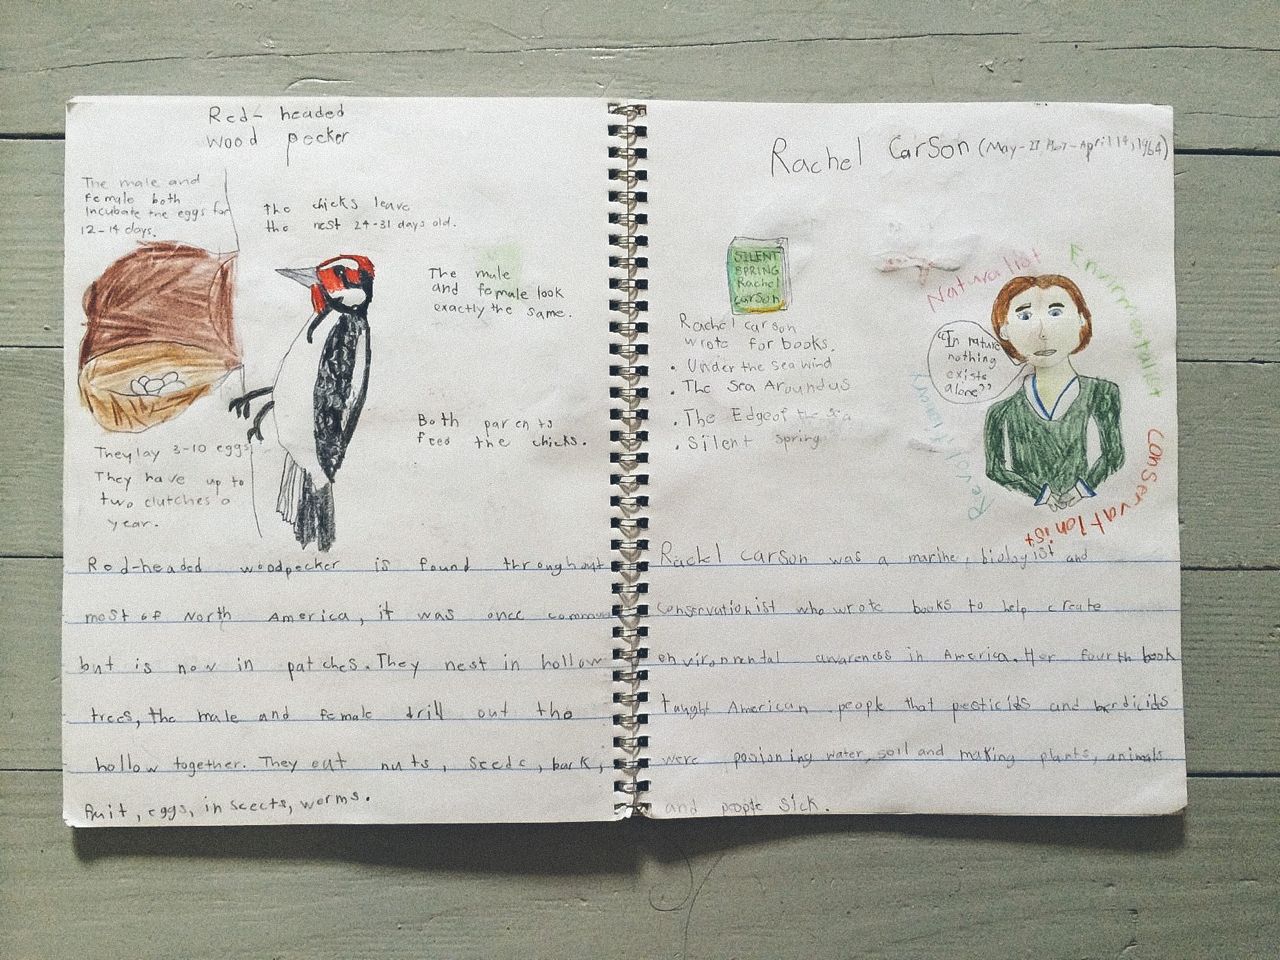 Red-headed
wood pecker
The male and
female both
incubate the eggs for
12-14 days.
the chicks leave
the nest 24-31 days old.
The male
and female look
exactly the same.
Both parents
feed the chicks.
They lay 3-10 eggs
They have up to
two clutches a
year.
Red-headed woodpecker is found throughout
most of North America, it was once common
but is now in patches. They nest in hollow
trees, the male and female drill out the
hollow together. They eat nuts, seeds, bark,
fruit, eggs, insects, worms.
Rachel Carson (May-27, 1907-April 14, 1964)
SILENT
SPRING
Rachel
Carson
Rachel carson
wrote for books.
• Under the Sea wind
• The Sea Around us
• The Edge of the Sea
• Silent Spring
Naturalist
Envirmentalist
Conservationist
"In nature
nothing
exists
alone"
Rachel carson was a marine, biologist and
conservationist who wrote books to help create
environmental awareness in America. Her fourth book
taught American people that pesticids and herdicids
were posioning water, soil and making plants, animals
and people sick.